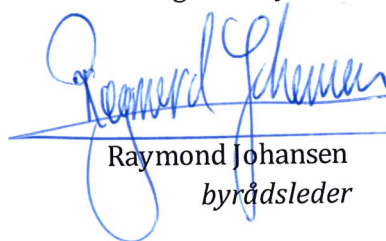 Raymond Johansen
Raymond Johansen
byrådsleder